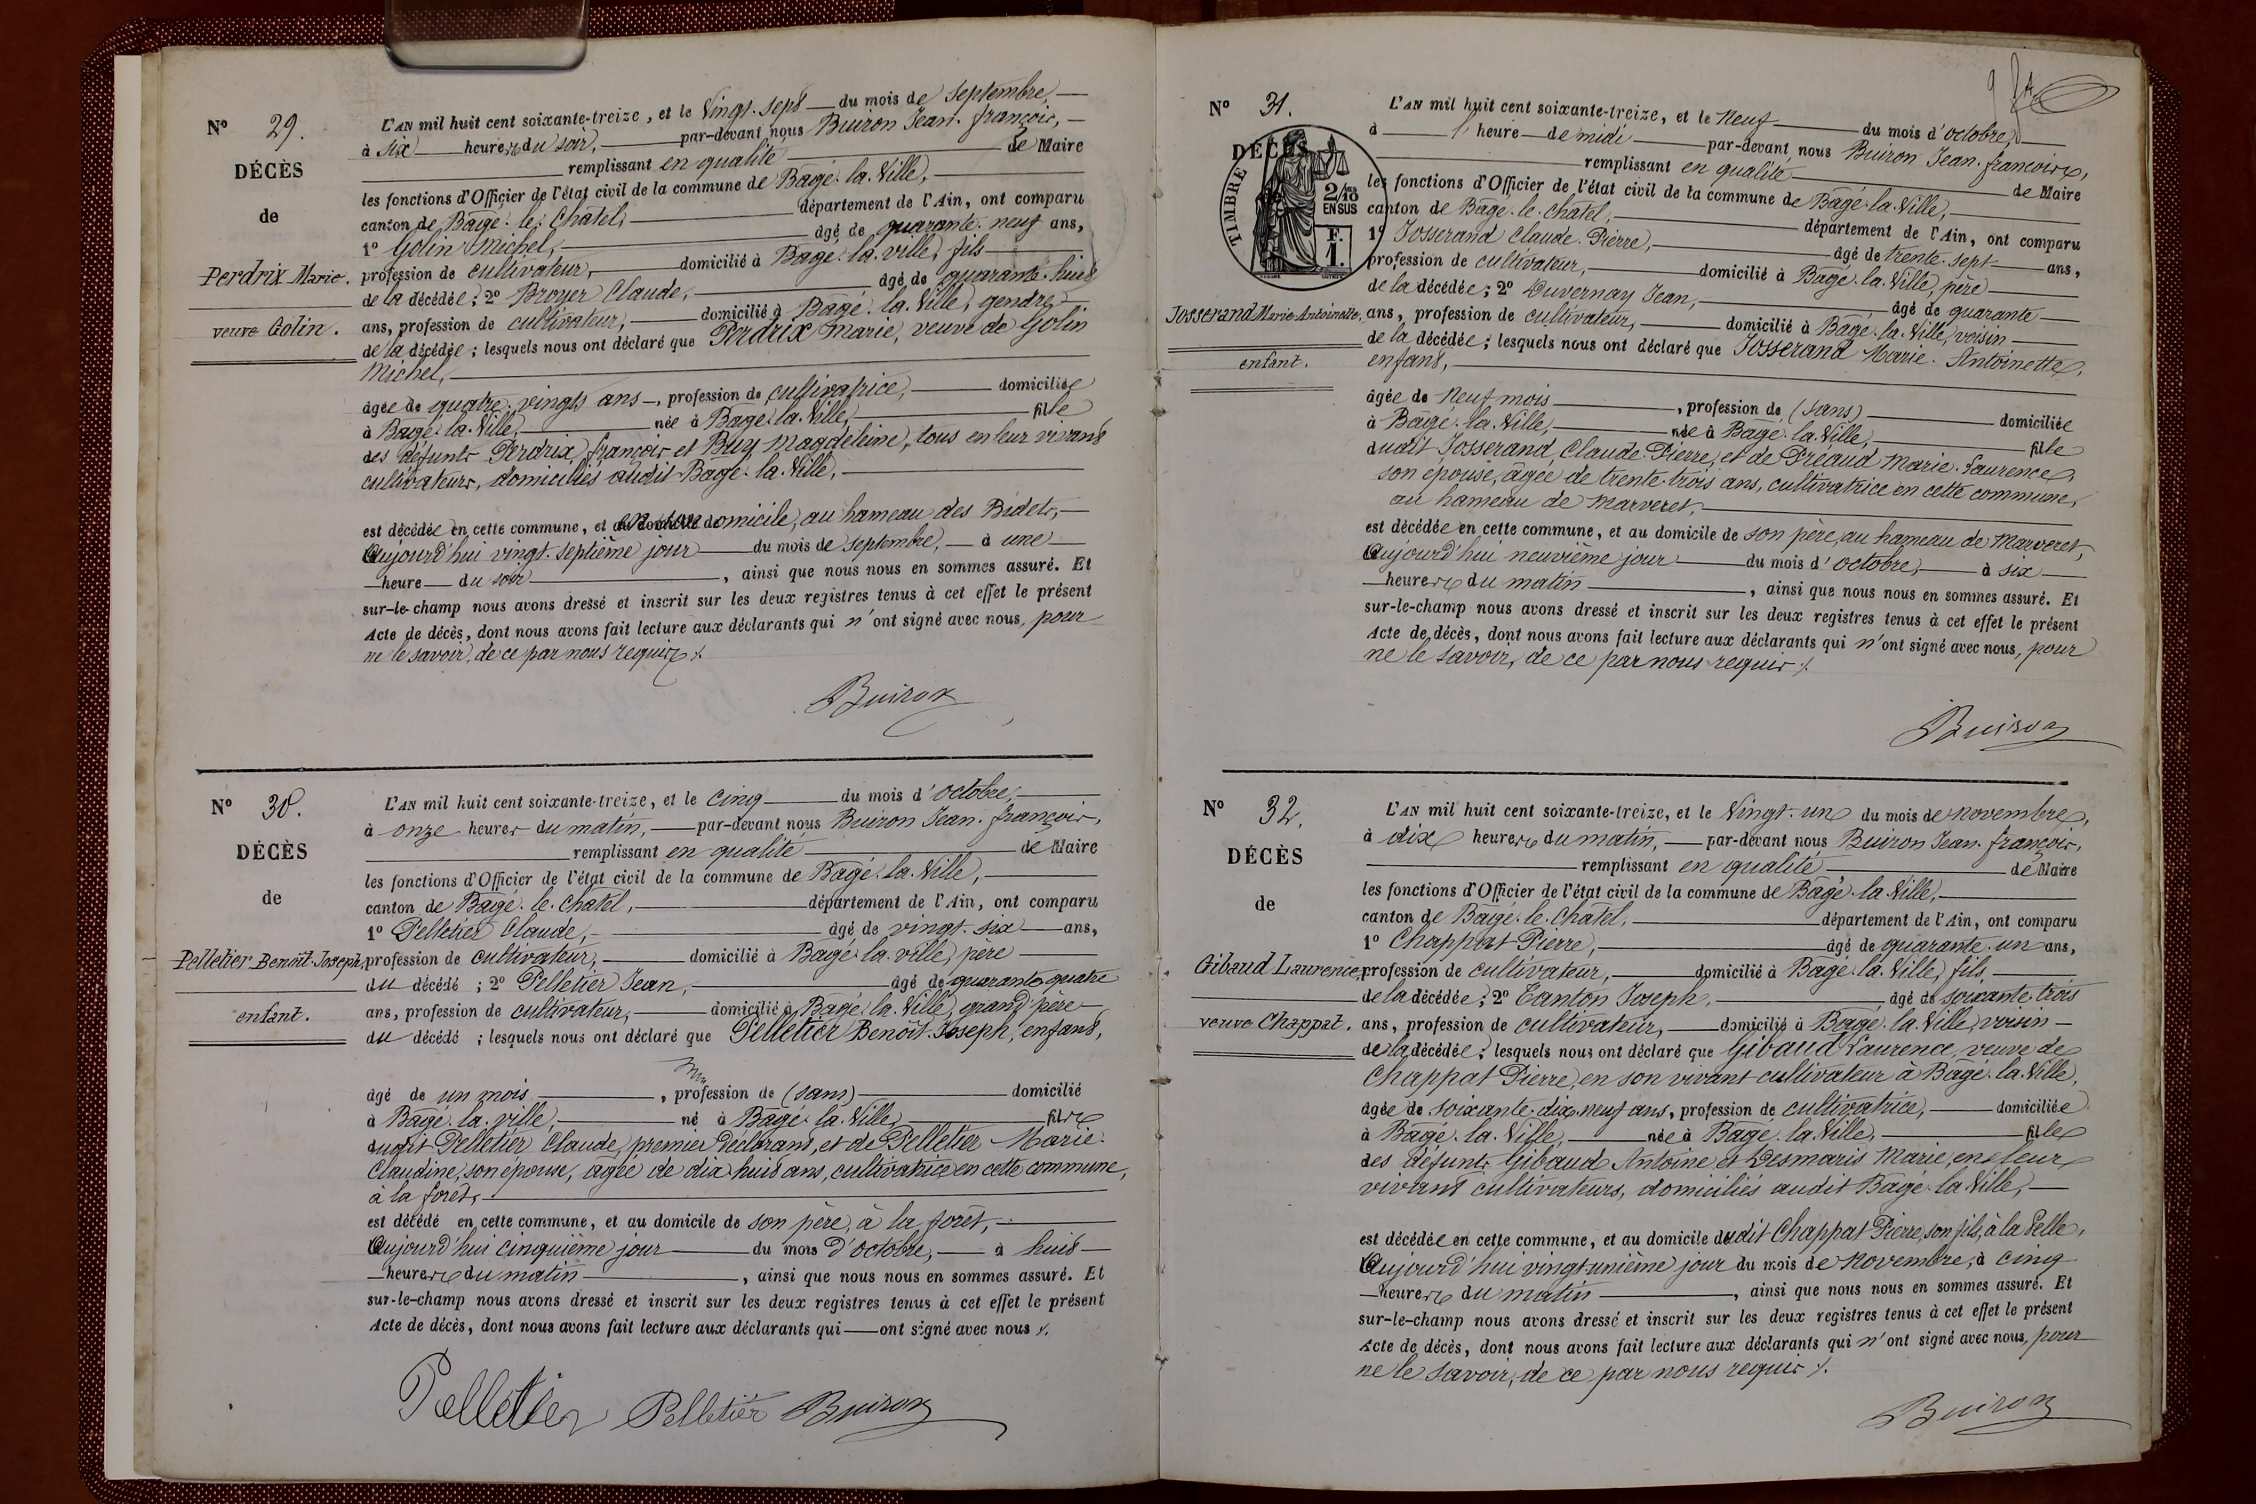 Nº 29.
DÉCÈS
de
Perdrix Marie.
veuve Golin.
L'AN mil huit cent soixante-treize, et le Vingt-sept du mois de Septembre,
à six heures du soir, par-devant nous Buiron Jean-françois,
remplissant en qualité de Maire
les fonctions d'Officier de l'état civil de la commune de Bâgé-la-Ville,
canton de Bâgé-le-Châtel, département de l'Ain, ont comparu
1º Golin Michel, âgé de quarante-neuf ans,
profession de cultivateur, domicilié à Bâgé-la-ville, fils
de la décédée; 2º Broyer Claude, âgé de quarante-huit
ans, profession de cultivateur, domicilié à Bâgé-la-Ville, gendre
de la décédée; lesquels nous ont déclaré que Perdrix Marie, veuve de Golin
Michel,
âgée de quatre-vingts ans, profession de cultivatrice, domiciliée
à Bâgé-la-Ville, née à Bâgé-la-Ville, fille
des défunts Perdrix françois et Buy Magdeleine, tous en leur vivant
cultivateurs, domiciliés audit Bâgé-la-Ville,
est décédée en cette commune, et en son domicile, au hameau des Bidets,
Aujourd'hui vingt-septième jour du mois de Septembre, à une
heure du soir, ainsi que nous nous en sommes assuré. Et
sur-le-champ nous avons dressé et inscrit sur les deux registres tenus à cet effet le présent
Acte de décès, dont nous avons fait lecture aux déclarants qui n'ont signé avec nous, pour
ne le savoir, de ce par nous requis ./.
Buiron
Nº 30.
DÉCÈS
de
Pelletier Benoît-Joseph,
enfant.
L'AN mil huit cent soixante-treize, et le Cinq du mois d'octobre,
à onze heures du matin, par-devant nous Buiron Jean-françois,
remplissant en qualité de Maire
les fonctions d'Officier de l'état civil de la commune de Bâgé-la-Ville,
canton de Bâgé-le-Châtel, département de l'Ain, ont comparu
1º Pelletier Claude, âgé de vingt-six ans,
profession de cultivateur, domicilié à Bâgé-la-ville, père
du décédé; 2º Pelletier Jean, âgé de quarante-quatre
ans, profession de cultivateur, domicilié à Bâgé-la-Ville, grand'père
du décédé; lesquels nous ont déclaré que Pelletier Benoît-Joseph, enfant,
âgé de un mois, profession de (sans) domicilié
à Bâgé-la-ville, né à Bâgé-la-Ville, fils
dudit Pelletier Claude, premier déclarant, et de Pelletier Marie-
Claudine, son épouse, âgée de dix-huit ans, cultivatrice en cette commune,
à la forêt,
est décédé en cette commune, et au domicile de son père, à la forêt,
Aujourd'hui cinquième jour du mois d'octobre, à huit
heures du matin, ainsi que nous nous en sommes assuré. Et
sur-le-champ nous avons dressé et inscrit sur les deux registres tenus à cet effet le présent
Acte de décès, dont nous avons fait lecture aux déclarants qui ont signé avec nous ./.
Pelletier Pelletier Buiron
Nº 31.
DÉCÈS
TIMBRE
2/10 EN SUS
F. 1.
Josserand Marie-Antoinette,
enfant.
L'AN mil huit cent soixante-treize, et le Neuf du mois d'octobre,
à l'heure de midi par-devant nous Buiron Jean-françois,
remplissant en qualité de Maire
les fonctions d'Officier de l'état civil de la commune de Bâgé-la-Ville,
canton de Bâgé-le-Châtel, département de l'Ain, ont comparu
1º Josserand Claude-Pierre, âgé de trente-sept ans,
profession de cultivateur, domicilié à Bâgé-la-Ville, père
de la décédée; 2º Duvernay Jean, âgé de quarante
ans, profession de cultivateur, domicilié à Bâgé-la-Ville, voisin
de la décédée; lesquels nous ont déclaré que Josserand Marie-Antoinette,
enfant,
âgée de Neuf mois, profession de (sans) domiciliée
à Bâgé-la-Ville, née à Bâgé-la-Ville, fille
dudit Josserand Claude-Pierre, et de Préaud Marie-Laurence,
son épouse, âgée de trente-trois ans, cultivatrice en cette commune,
au hameau de Marveret,
est décédée en cette commune, et au domicile de son père, au hameau de Marveret,
Aujourd'hui neuvième jour du mois d'octobre, à six
heures du matin, ainsi que nous nous en sommes assuré. Et
sur-le-champ nous avons dressé et inscrit sur les deux registres tenus à cet effet le présent
Acte de décès, dont nous avons fait lecture aux déclarants qui n'ont signé avec nous, pour
ne le savoir, de ce par nous requis ./.
Buiron
Nº 32.
DÉCÈS
de
Gibaud Laurence,
veuve Chappat.
L'AN mil huit cent soixante-treize, et le Vingt-un du mois de novembre,
à dix heures du matin, par-devant nous Buiron Jean-françois,
remplissant en qualité de Maire
les fonctions d'Officier de l'état civil de la commune de Bâgé-la-Ville,
canton de Bâgé-le-Châtel, département de l'Ain, ont comparu
1º Chappat Pierre, âgé de quarante-un ans,
profession de cultivateur, domicilié à Bâgé-la-Ville, fils
de la décédée; 2º Tanton Joseph, âgé de soixante-trois
ans, profession de cultivateur, domicilié à Bâgé-la-Ville, voisin
de la décédée; lesquels nous ont déclaré que Gibaud Laurence, veuve de
Chappat Pierre, en son vivant cultivateur à Bâgé-la-Ville,
âgée de soixante-dix-neuf ans, profession de cultivatrice, domiciliée
à Bâgé-la-Ville, née à Bâgé-la-Ville, fille
des défunts Gibaud Antoine et Desmaris Marie, en leur
vivant cultivateurs, domiciliés audit Bâgé-la-Ville,
est décédée en cette commune, et au domicile dudit Chappat Pierre, son fils, à la Pelle,
Aujourd'hui vingt-unième jour du mois de Novembre, à cinq
heures du matin, ainsi que nous nous en sommes assuré. Et
sur-le-champ nous avons dressé et inscrit sur les deux registres tenus à cet effet le présent
Acte de décès, dont nous avons fait lecture aux déclarants qui n'ont signé avec nous, pour
ne le savoir, de ce par nous requis ./.
Buiron